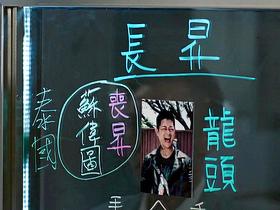 長昇
龍頭
喪昇
蘇偉圖
泰國